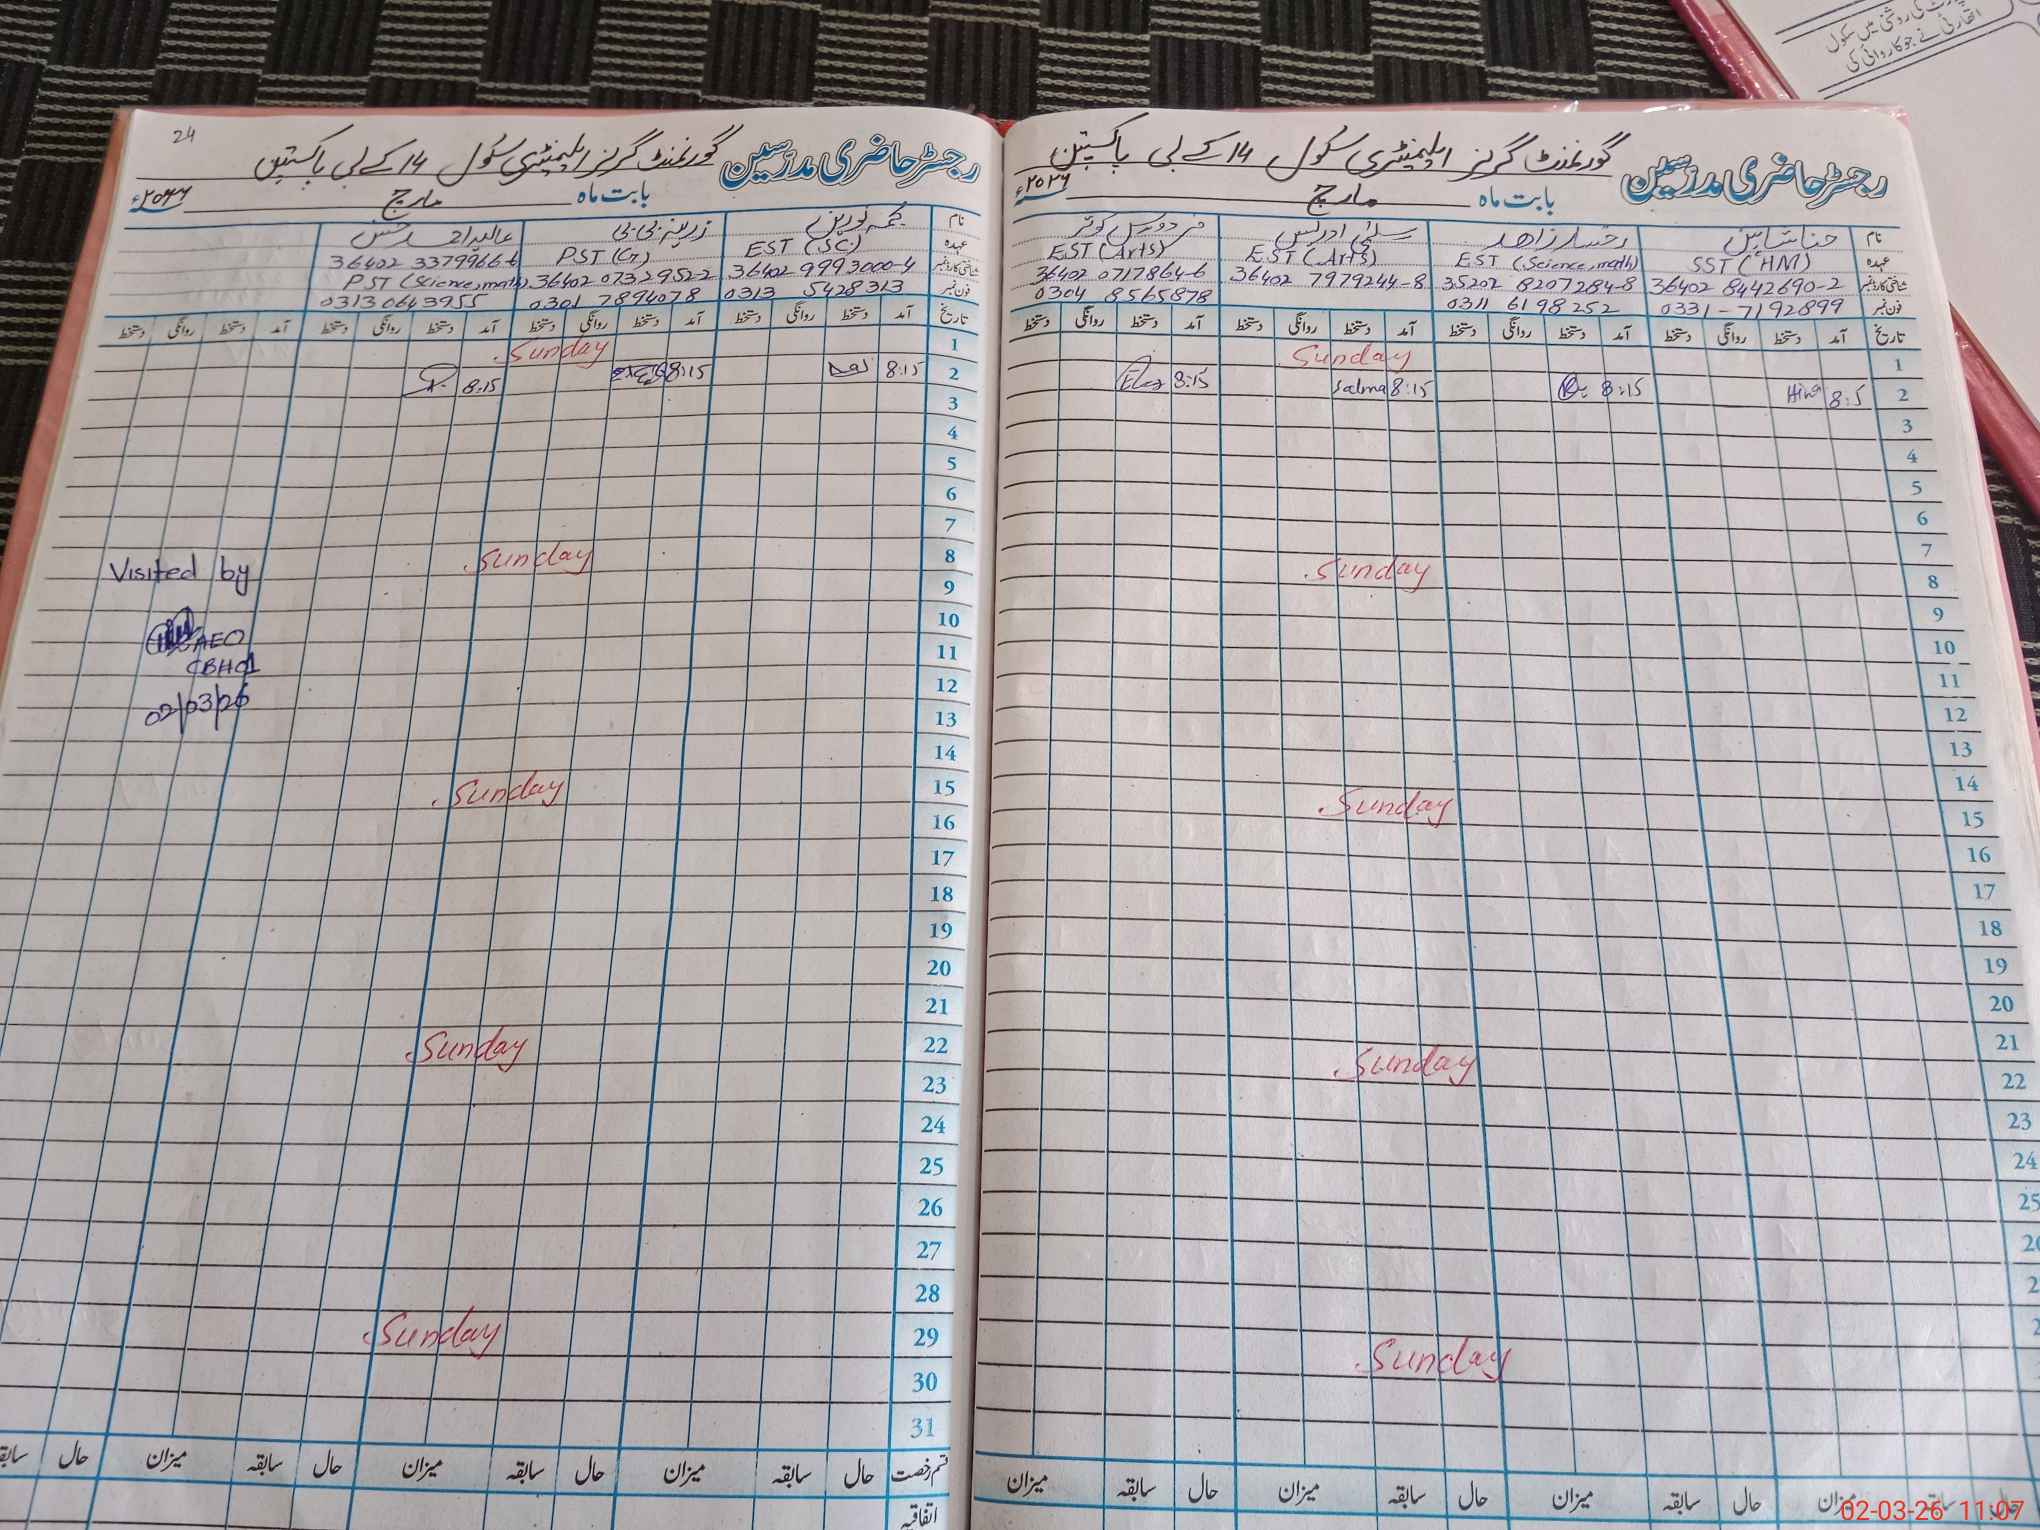 24
رجسٹر حاضری مدرسین گورنمنٹ گرلز ایلیمنٹری سکول 14 کے بی پاکپتن
بابت ماہ مارچ ۲۰۲۶ء
نام نجمہ نورین زرینہ بی بی
عہدہ EST (SC) PST (G) 36402 3379966-6
شناختی کارڈ نمبر 36402 9993000-4 36402 0732952-2 PST (Science, math)
فون نمبر 0313 5428313 0301 7894078 0313 0643955
تاریخ آمد دستخط روانگی دستخط آمد دستخط روانگی دستخط آمد دستخط روانگی دستخط آمد دستخط روانگی دستخط
1 Sunday
2 8:15 8:15 8:15
3
4
5
6
7
8 Sunday
Visited by
9
10
AEO
11
12
02/03/26
13
14
15 Sunday
16
17
18
19
20
21
22 Sunday
23
24
25
26
27
28
29 Sunday
30
31
قسم رخصت حال سابقہ میزان حال سابقہ میزان حال سابقہ میزان حال
اتفاقیہ
رجسٹر حاضری مدرسین گورنمنٹ گرلز ایلیمنٹری سکول 14 کے بی پاکپتن
بابت ماہ مارچ ۲۰۲۶ء
نام حنا شاہین رخسار زاہد سلمیٰ ادریس فردوس کوثر
عہدہ SST (HM) EST (Science, math) EST (Arts) EST (Arts)
شناختی کارڈ نمبر 36402 8442690-2 35202 8207284-8 36402 7979244-8 36402 0717864-6
فون نمبر 0331-7192899 0311 6198252 0304 8565878
تاریخ آمد دستخط روانگی دستخط آمد دستخط روانگی دستخط آمد دستخط روانگی دستخط آمد دستخط روانگی دستخط
1 Sunday
2 8:5 Hina 8:15 8:15 Salma 8:15
3
4
5
6
7
8 Sunday
9
10
11
12
13
14
15 Sunday
16
17
18
19
20
21
22 Sunday
23
24
25
Sunday
حال سابقہ میزان حال سابقہ میزان حال سابقہ میزان حال سابقہ میزان
02-03-26 11:07